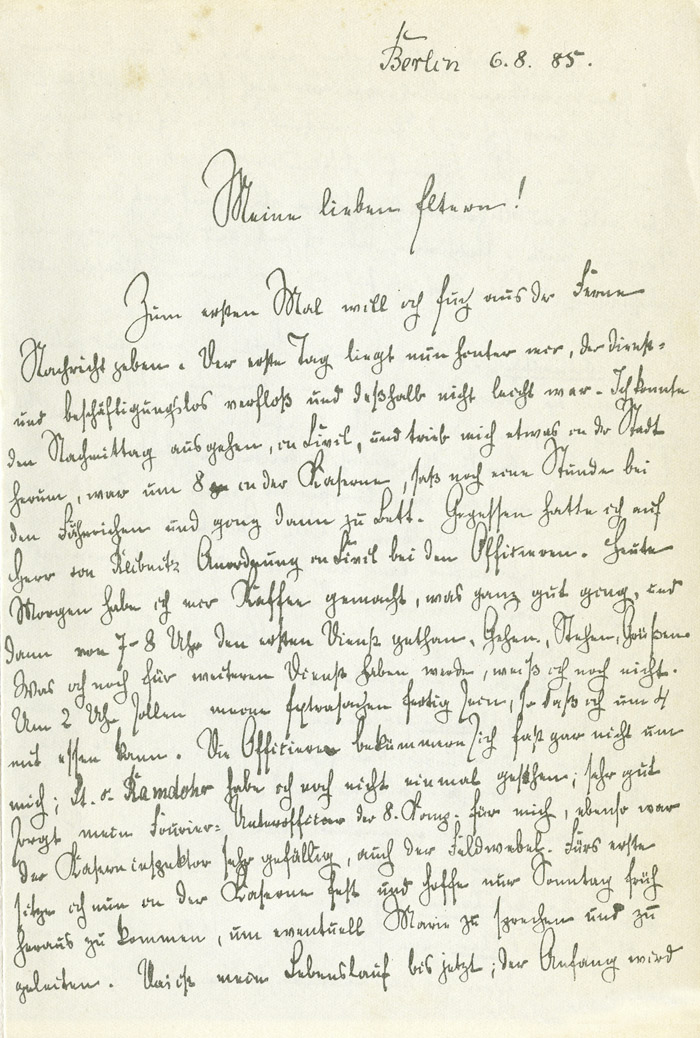 Berlin 6. 8. 85.
Meine lieben Eltern!
Zum ersten Mal will ich Euch aus der Ferne
Nachricht geben. Der erste Tag liegt nun hinter mir, der dienst-
und beschäftigungslos verfloß und deßhalb nicht leicht war. Ich konnte
den Nachmittag ausgehen, in Civil, und trieb mich etwas in der Stadt
herum, war um 8 in der Kaserne, saß noch eine Stunde bei
den Fähnrichen und ging dann zu Bett. Gegessen hatte ich auf
Herr von Anordnung in Civil bei den Officieren. Heute
Morgen habe ich mir Kaffee gemacht, was ganz gut ging, und
dann von 7-8 Uhr den ersten Dienst gethan, Gehen, Stehen, Grüßen.
Was ich noch für weiteren Dienst haben werde, weiß ich noch nicht.
Um 2 Uhr sollen meine Extrasachen fertig sein, so daß ich um 4
mit essen kann. Die Officiere bekümmern sich fast gar nicht um
mich; Lt. v. Ramdohr habe ich noch nicht einmal gesehen; sehr gut
sorgt mein Fourier-Unterofficier der 8. Komp. für mich, ebenso war
der Kaserneninspektor sehr gefällig, auch der Feldwebel. Fürs erste
sitze ich nun in der Kaserne fest und hoffe nur Sonntag früh
heraus zu kommen, um eventuell Marie zu sprechen und zu
geleiten. Das ist mein Lebenslauf bis jetzt; der Anfang wird